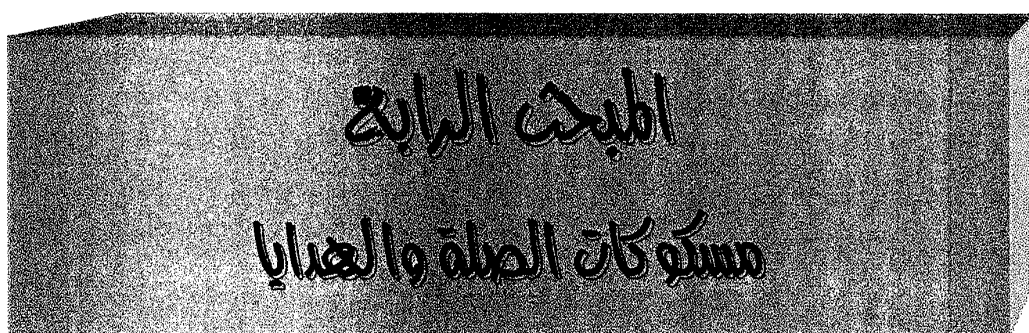 المبحث الرابع
مسكوكات الصلة والهدايا